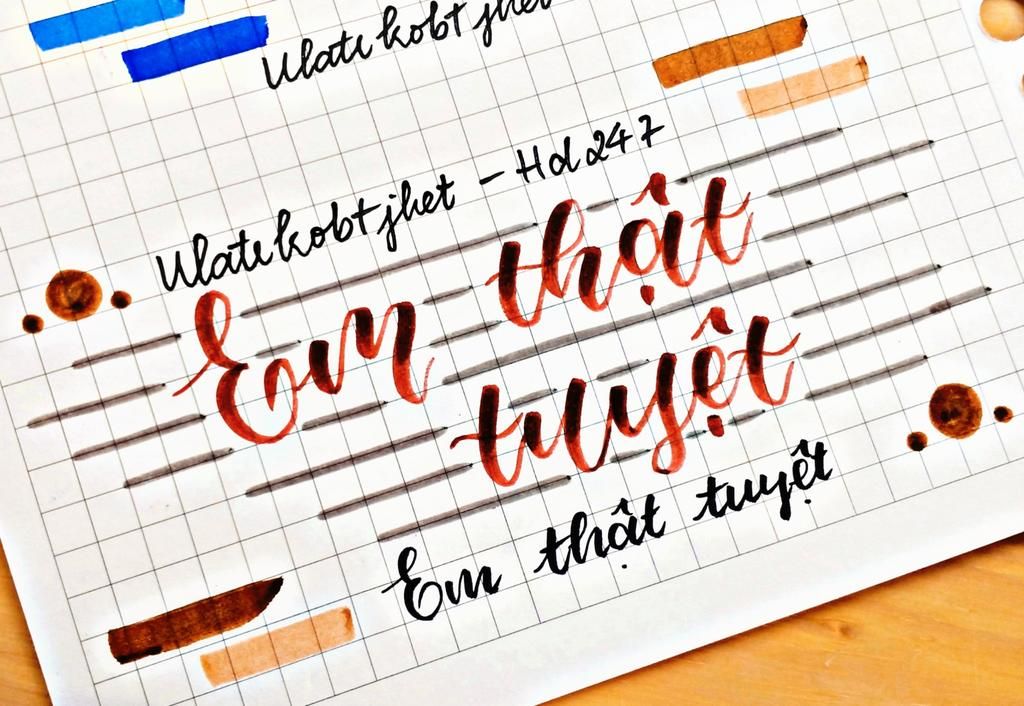 Ulatekobtjhet
Ulatekobtjhet - Hd247
Em thật
tuyệt
Em thật tuyệt